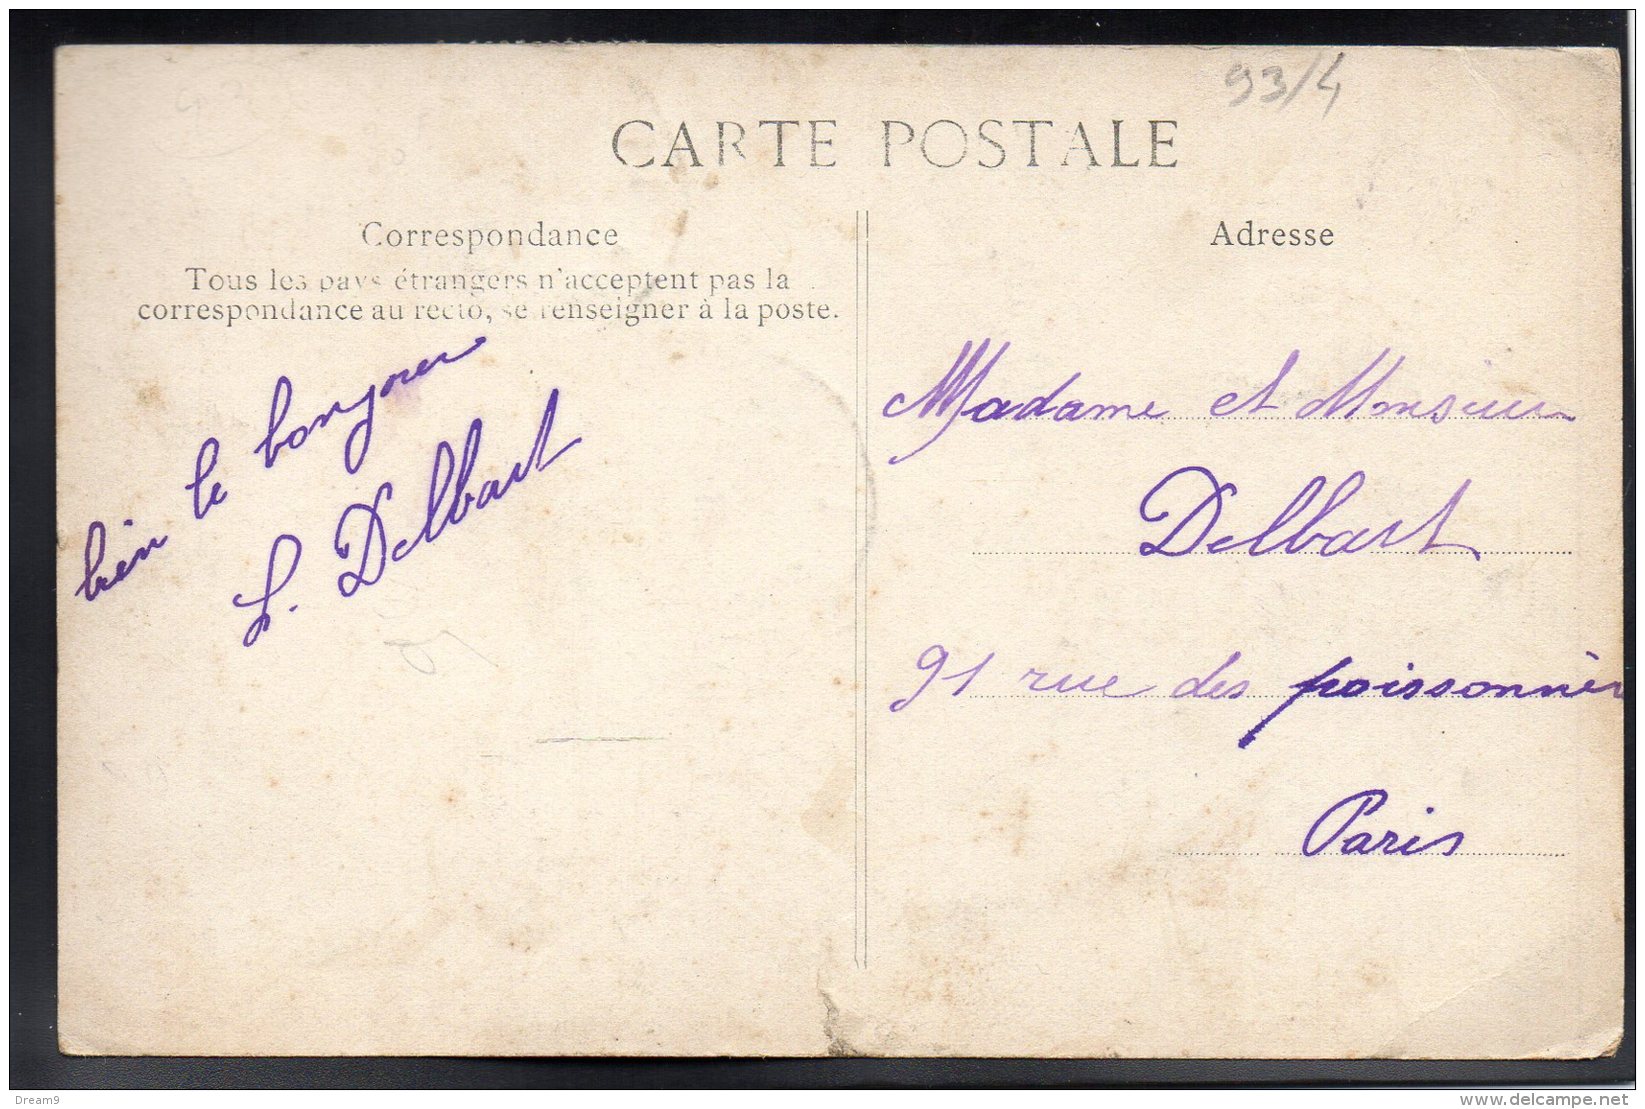 93/4
CARTE POSTALE
Correspondance
Tous les pays étrangers n'acceptent pas la
correspondance au recto, se renseigner à la poste.
bien le bonjour
L. Delbart
Adresse
Madame et Monsieur
Delbart
91 rue des poissonnièr
Paris
Dream9
delcampe.net